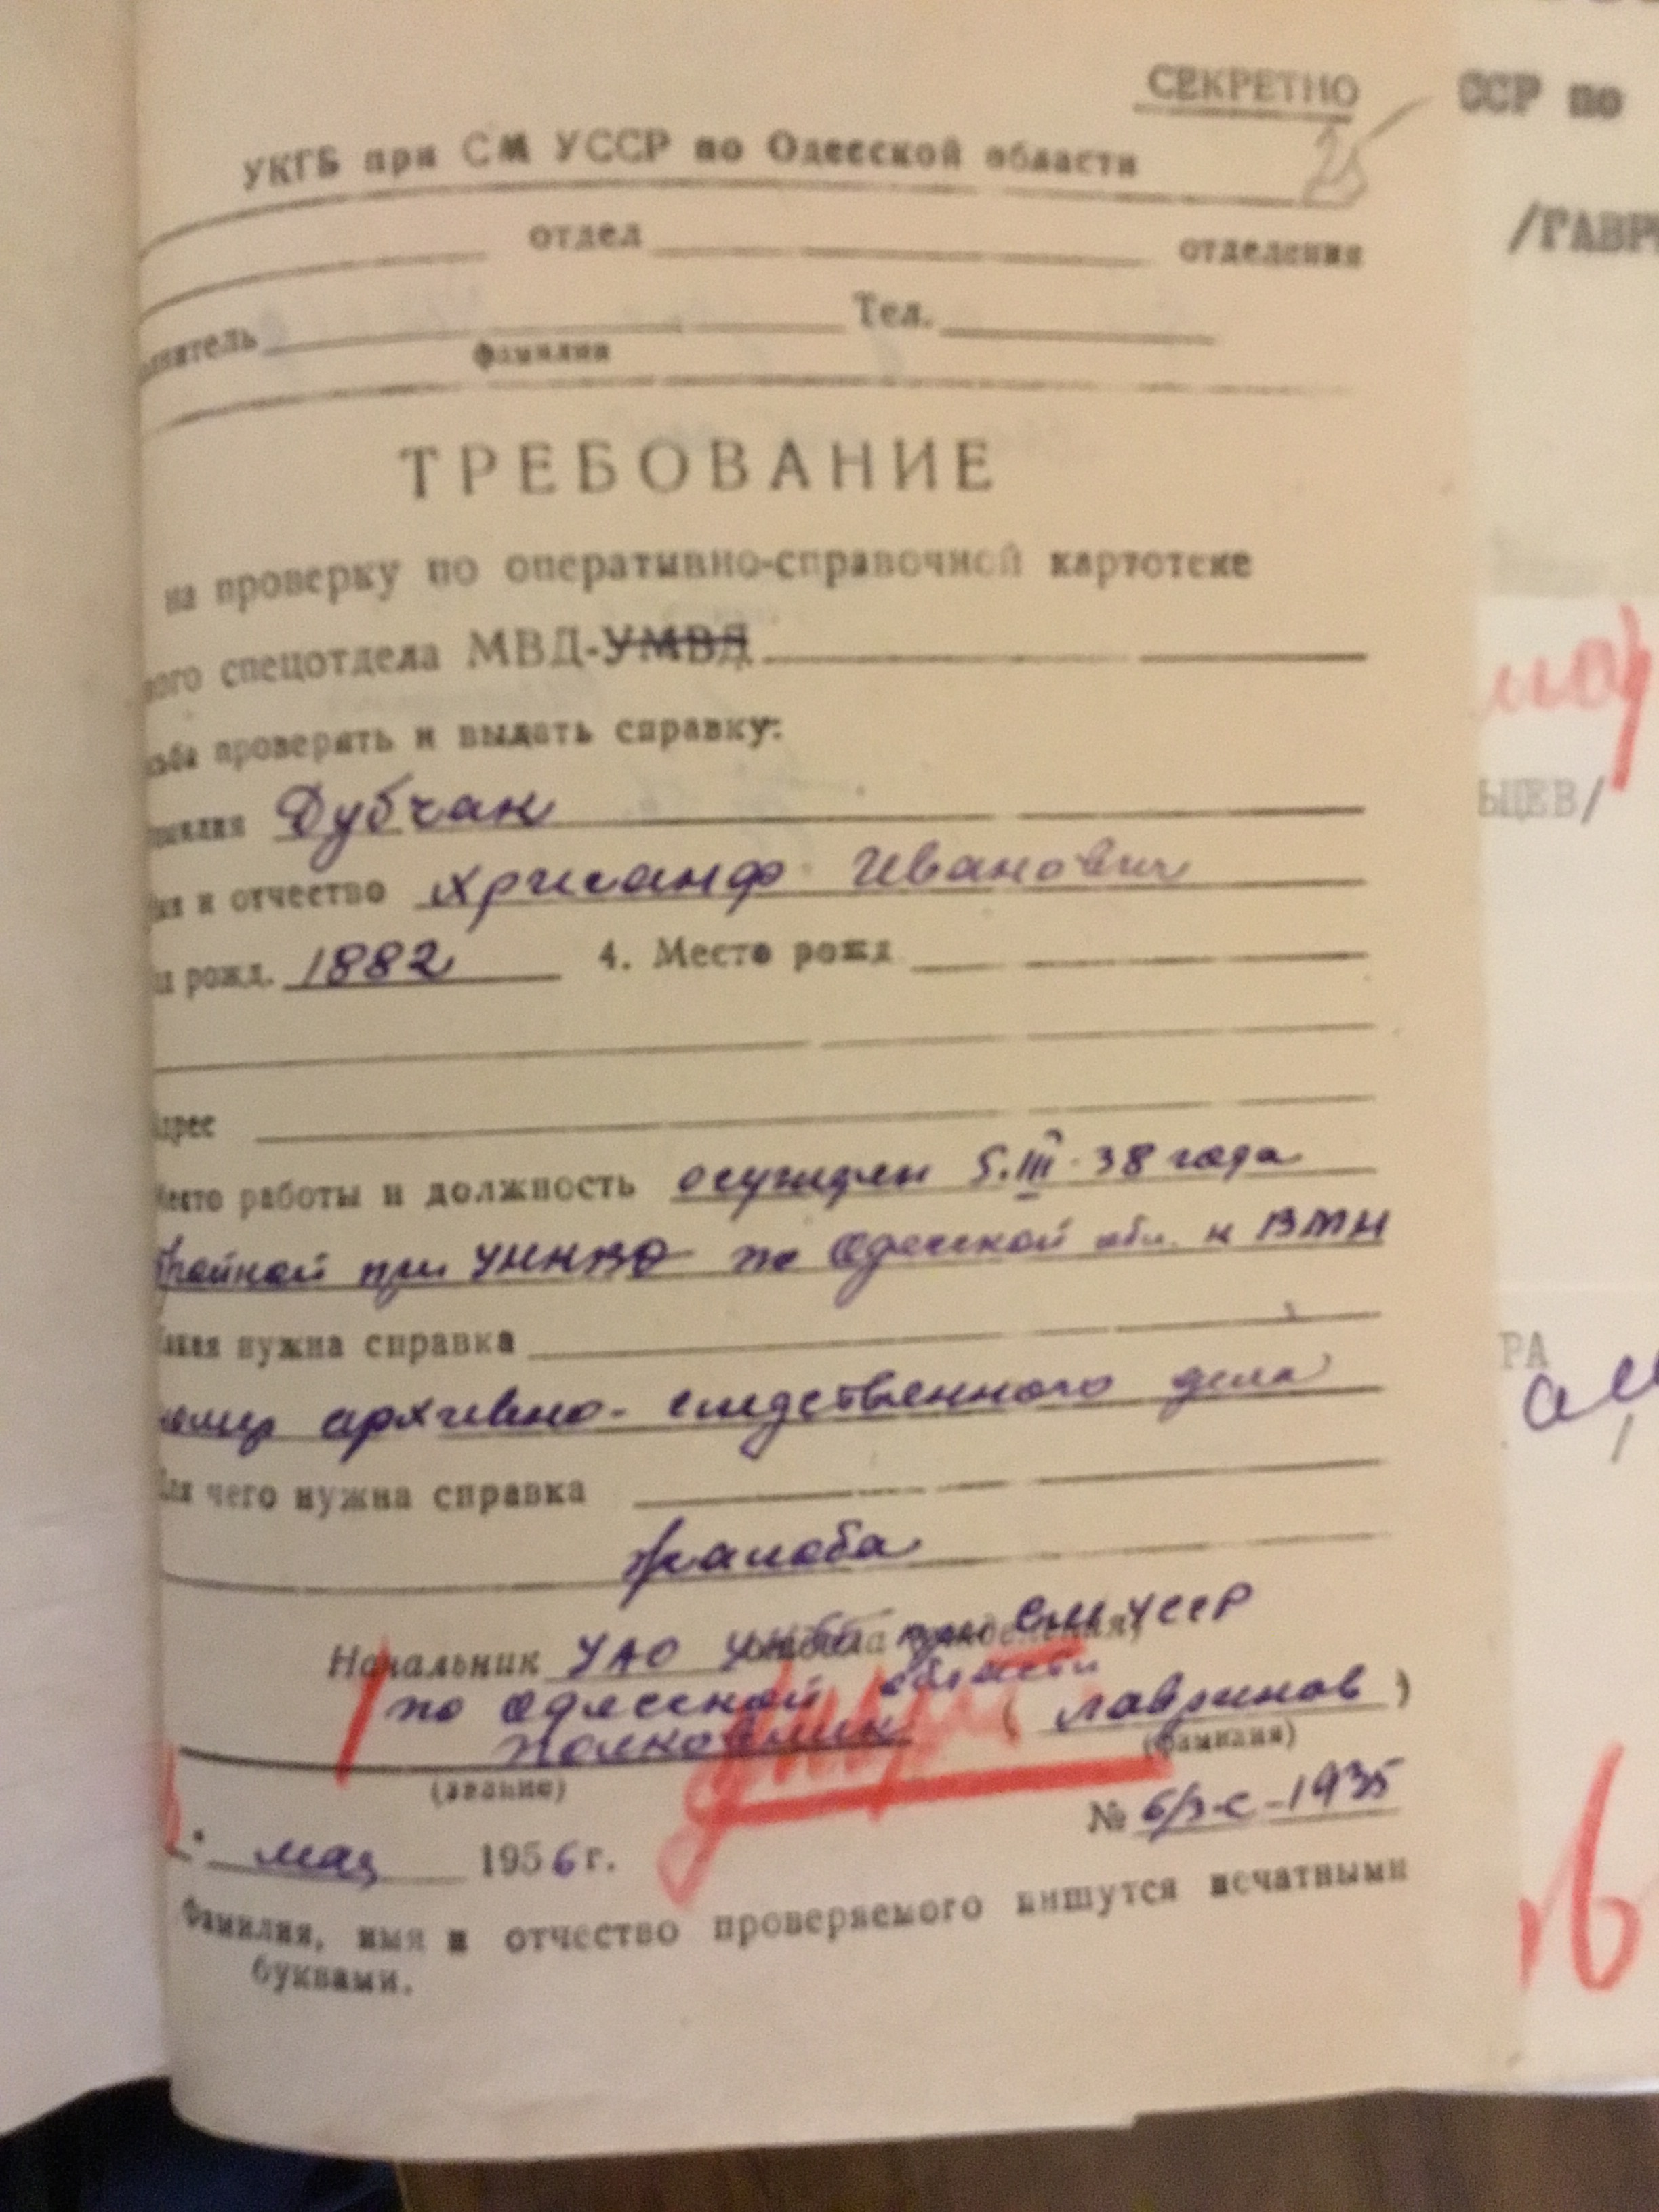 СЕКРЕТНО
25
УКГБ при СМ УССР по Одесской области
отдел отделения
нитель Тел.
фамилия
ТРЕБОВАНИЕ
на проверку по оперативно-справочной картотеке
ого спецотдела МВД-УМВД
ьба проверить и выдать справку:
милия Дубчак
мя и отчество Хрисанф Иванович
рожд. 1882 4. Место рожд
Адрес
Место работы и должность осужден 5.III.38 года
тройкой при УНКВД по Одесской обл. к ВМН
Какая нужна справка
номер архивно-следственного дела
Для чего нужна справка
жалоба
Начальник УАО УКГБ при СМ УССР
по Одесской области
полковник ( Лавринов )
(звание) (фамилия)
№ 6/з-с-1935
мая 1956 г.
Фамилия, имя и отчество проверяемого пишутся печатными
буквами.
ССР по
/ГАВР
ЬЦЕВ/
РА